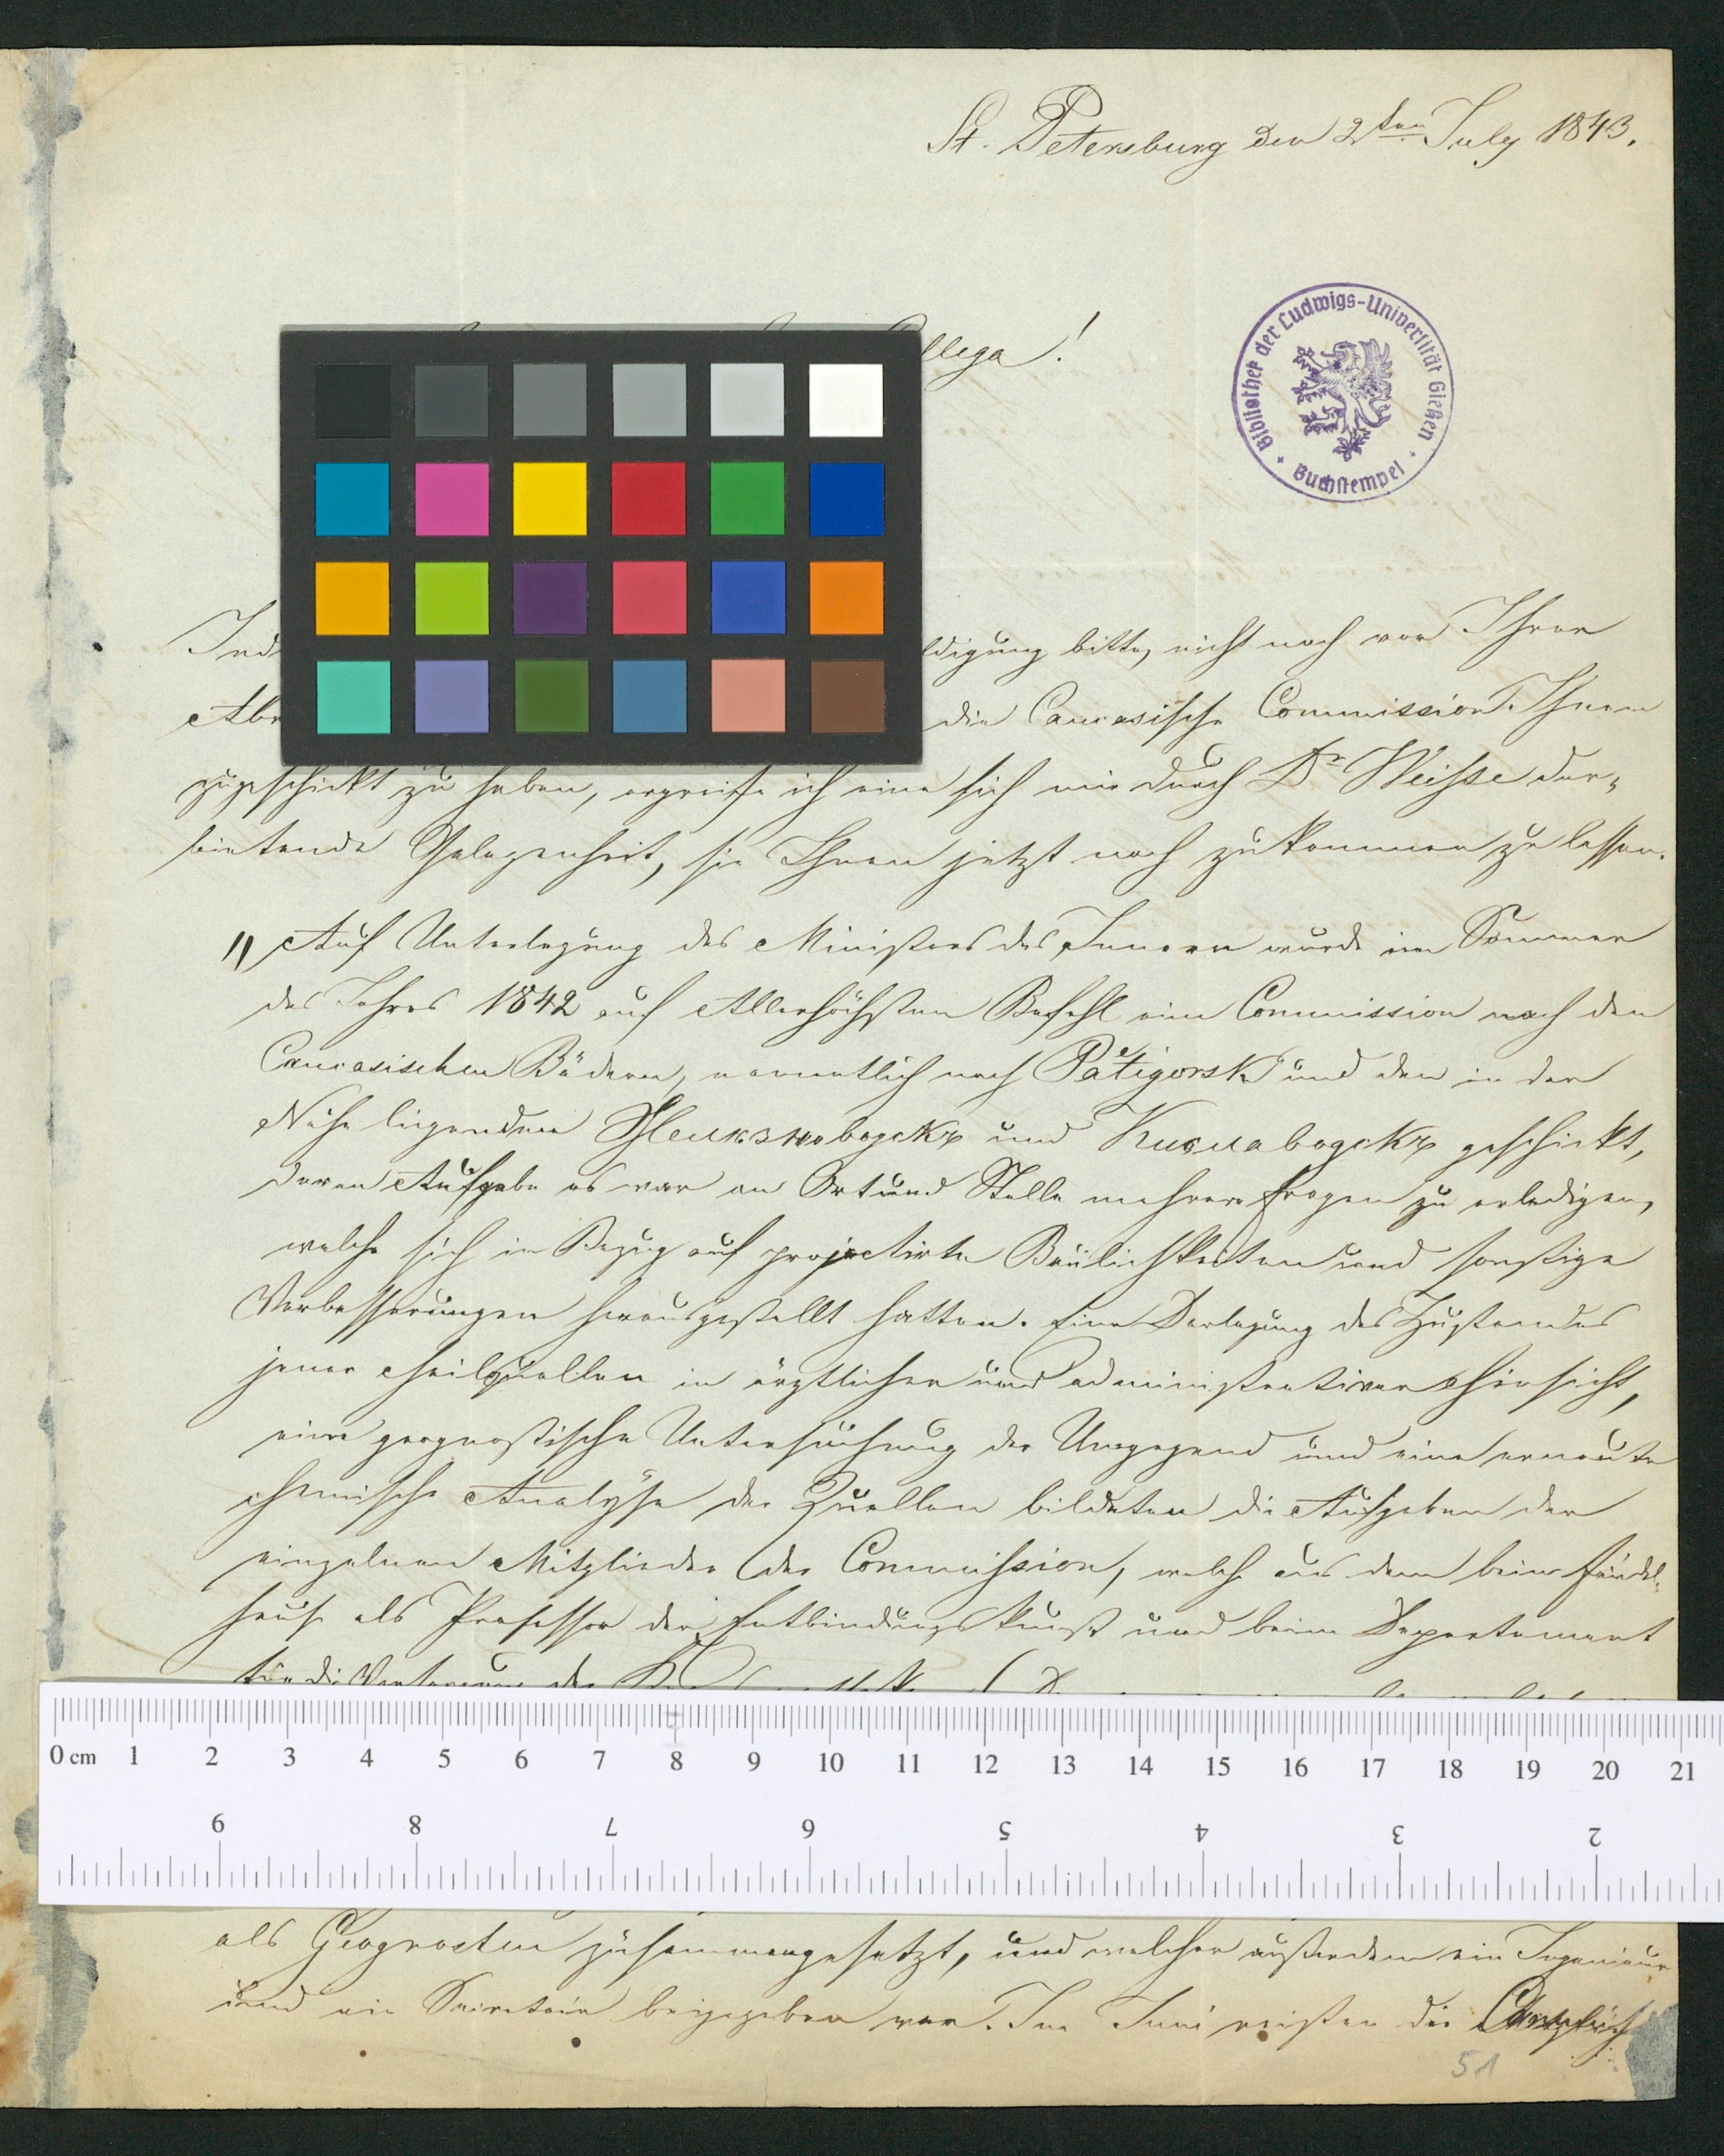 St. Petersburg den 2ten July 1843.
llega!
Bibliothek der Ludwigs-Universität Gießen
Buchstempel
Ind
ldigung bitte, nicht noch vor Ihrer
Abr
die Caucasische Commission Ihnen
zugeschickt zu haben, ergreife ich eine sich mir durch Dr Weisse dar-
bietende Gelegenheit, sie Ihnen jetzt noch zukommen zu lassen.
" Auf Unterlegung des Ministers des Innern wurde im Sommer
des Jahres 1842 auf Allerhöchsten Befehl eine Commission nach den
Caucasischen Bädern, namentlich nach Pätigorsk und den in der
Nähe liegenden und geschickt,
deren Aufgabe es war an Ort und Stelle mehrere Fragen zu erledigen,
welche sich in Bezug auf projectirte Baulichkeiten und sonstige
Verbesserungen herausgestellt hatten. Eine Darlegung des Zustandes
jener Heilquellen in ärztlicher und administrativer Hinsicht,
eine geognostische Untersuchung der Umgegend und eine erneute
chemische Analyse der Quellen bildeten die Aufgaben der
einzelnen Mitglieder der Commission, welche aus dem beim Findel-
hause als Professor der Entbindungskunst und beim Departement
für die
0 cm 1 2 3 4 5 6 7 8 9 10 11 12 13 14 15 16 17 18 19 20 21
9 8 7 6 5 4 3 2
als Geognosten zusammengesetzt, und welcher außerdem ein Ingenieur
und ein Secretair beigegeben war. Im Juni reisten die
51